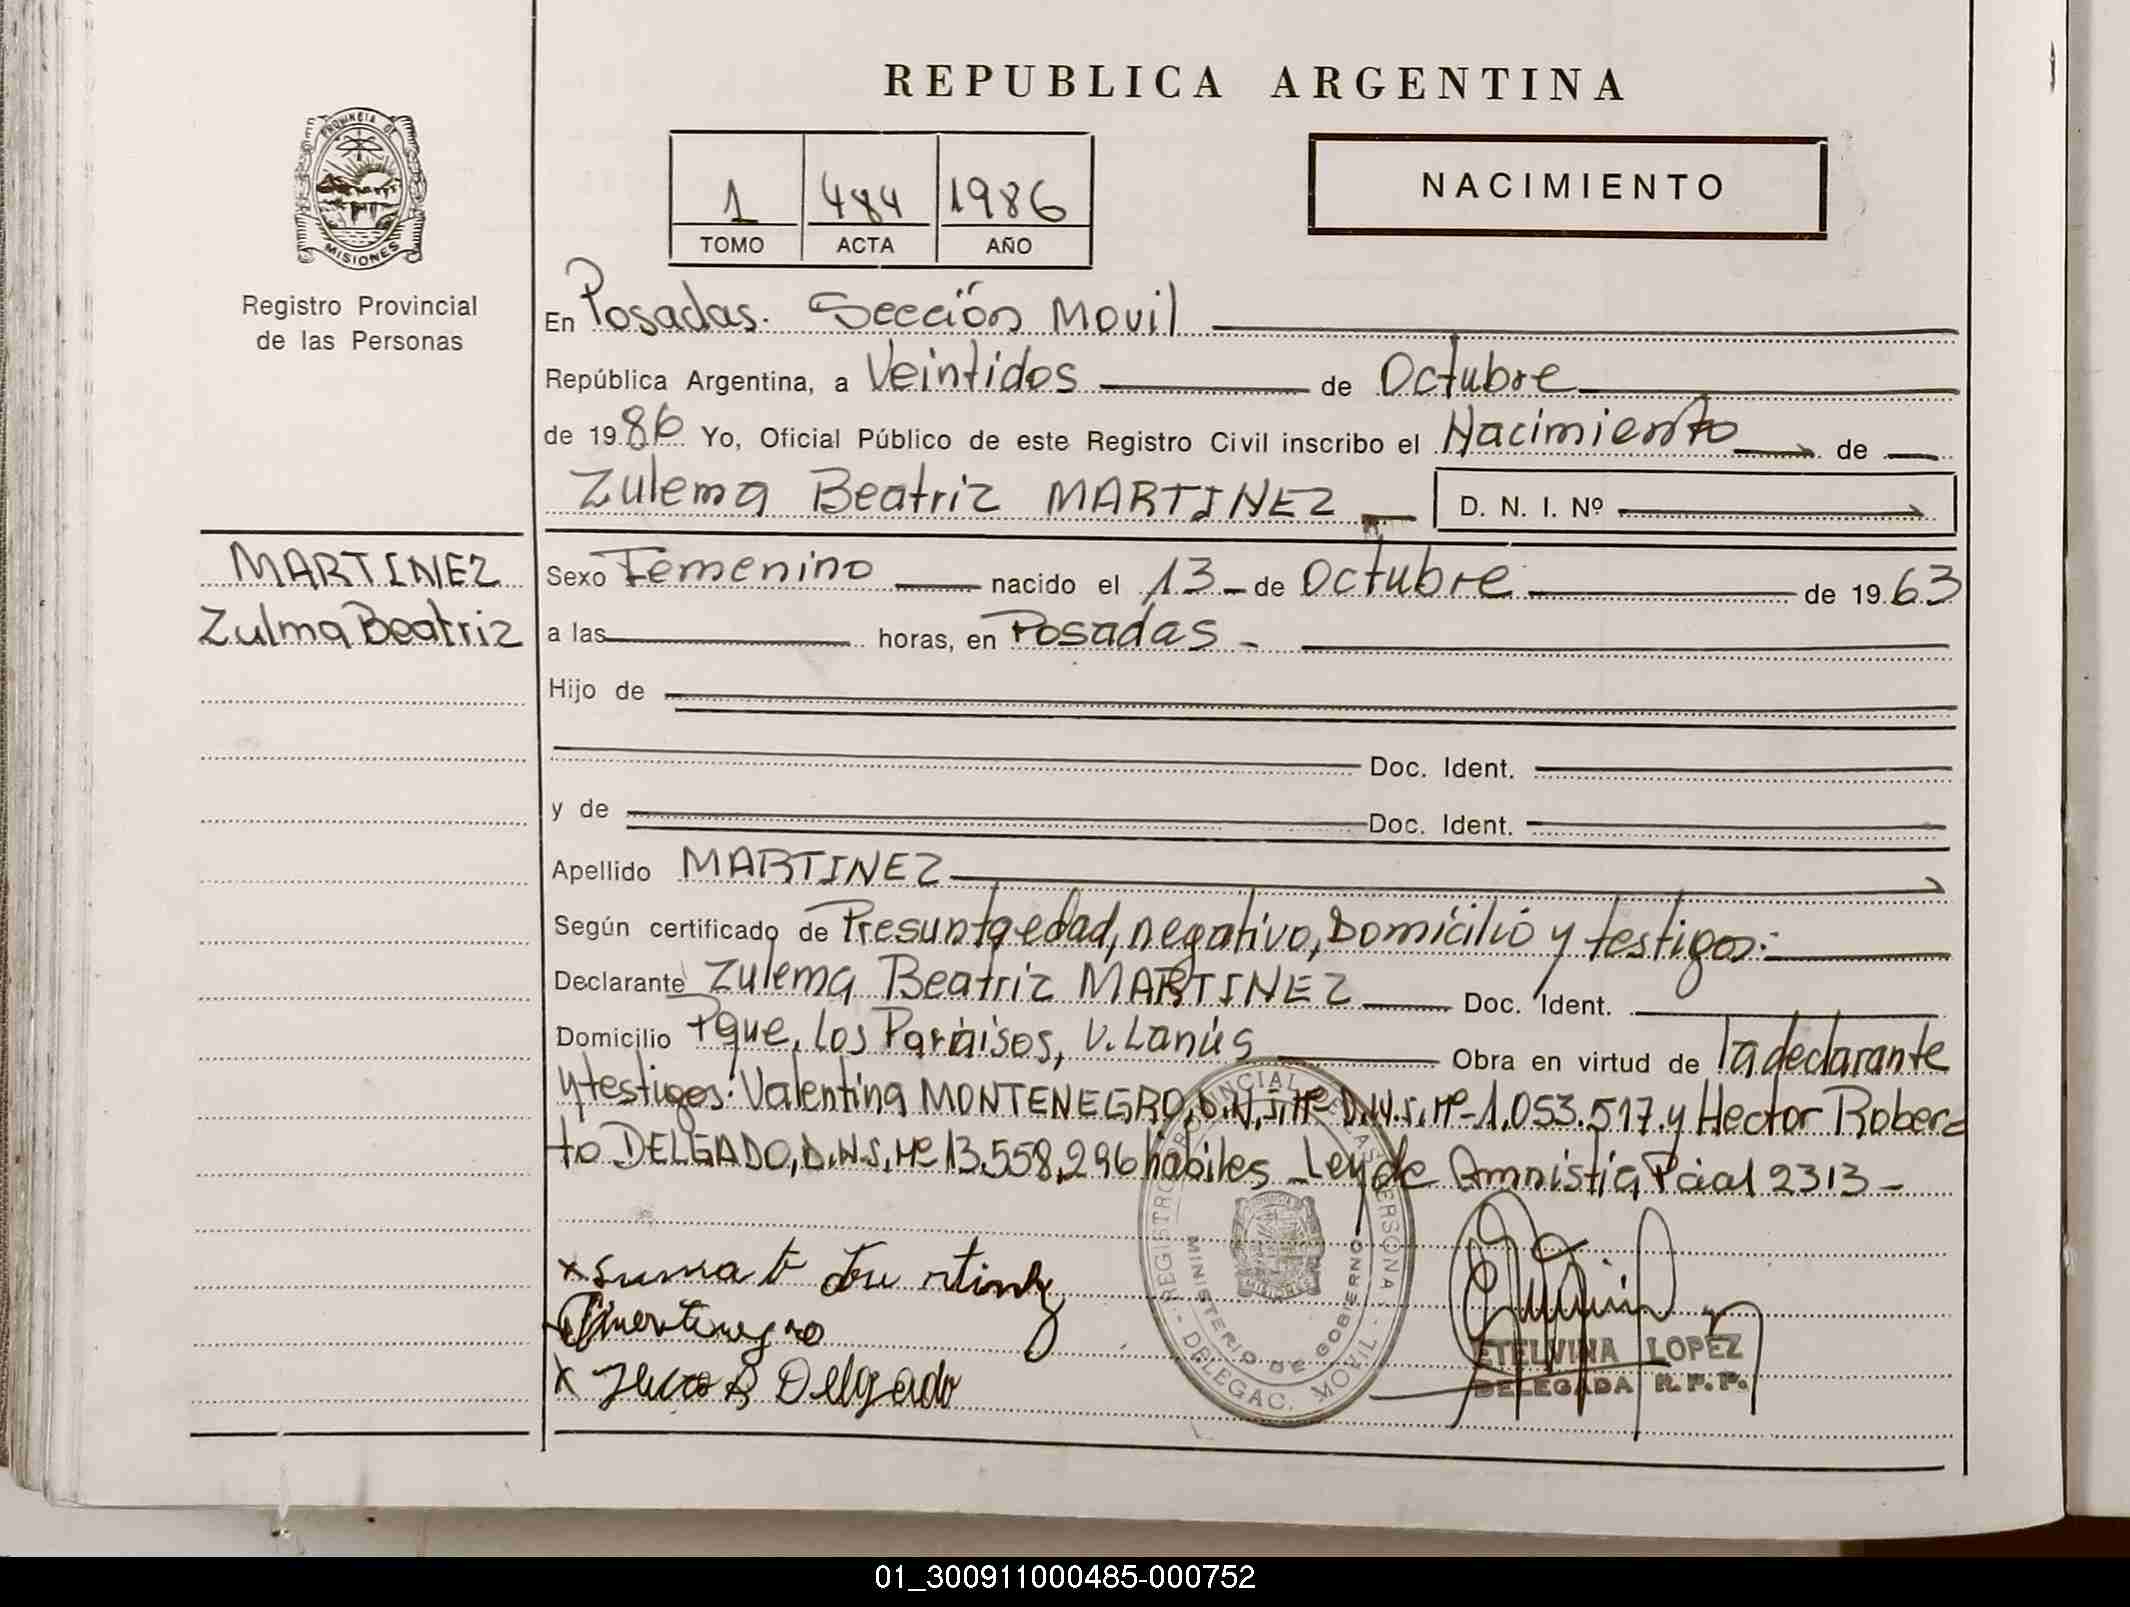 REPUBLICA ARGENTINA
PROVINCIA DE
MISIONES
Registro Provincial
de las Personas
1 484 1986
TOMO ACTA AÑO
NACIMIENTO
En Posadas. Sección Movil
República Argentina, a Veintidos de Octubre
de 1986 Yo, Oficial Público de este Registro Civil inscribo el Nacimiento de
Zulema Beatriz MARTINEZ D. N. I. Nº
MARTINEZ
Zulma Beatriz
Sexo Femenino nacido el 13 de Octubre de 1963
a las horas, en Posadas
Hijo de
Doc. Ident.
y de Doc. Ident.
Apellido MARTINEZ
Según certificado de Presunta edad, negativo, Domicilio y testigos:
Declarante Zulema Beatriz MARTINEZ Doc. Ident.
Domicilio Pque. Los Paraisos, V. Lanús Obra en virtud de la declarante
y testigos: Valentina MONTENEGRO, D.N.I. Nº D.N.I. Nº 1.053.517. y Hector Rober
to DELGADO, D.N.I. Nº 13.558.296 habiles Ley de Amnistia Pcial 2313
REGISTRO PROVINCIAL DE LAS PERSONAS
MINISTERIO DE GOBIERNO
DELEGAC. MOVIL
Delgado
ETELVINA LOPEZ
DELEGADA R.P.P.
01_300911000485-000752